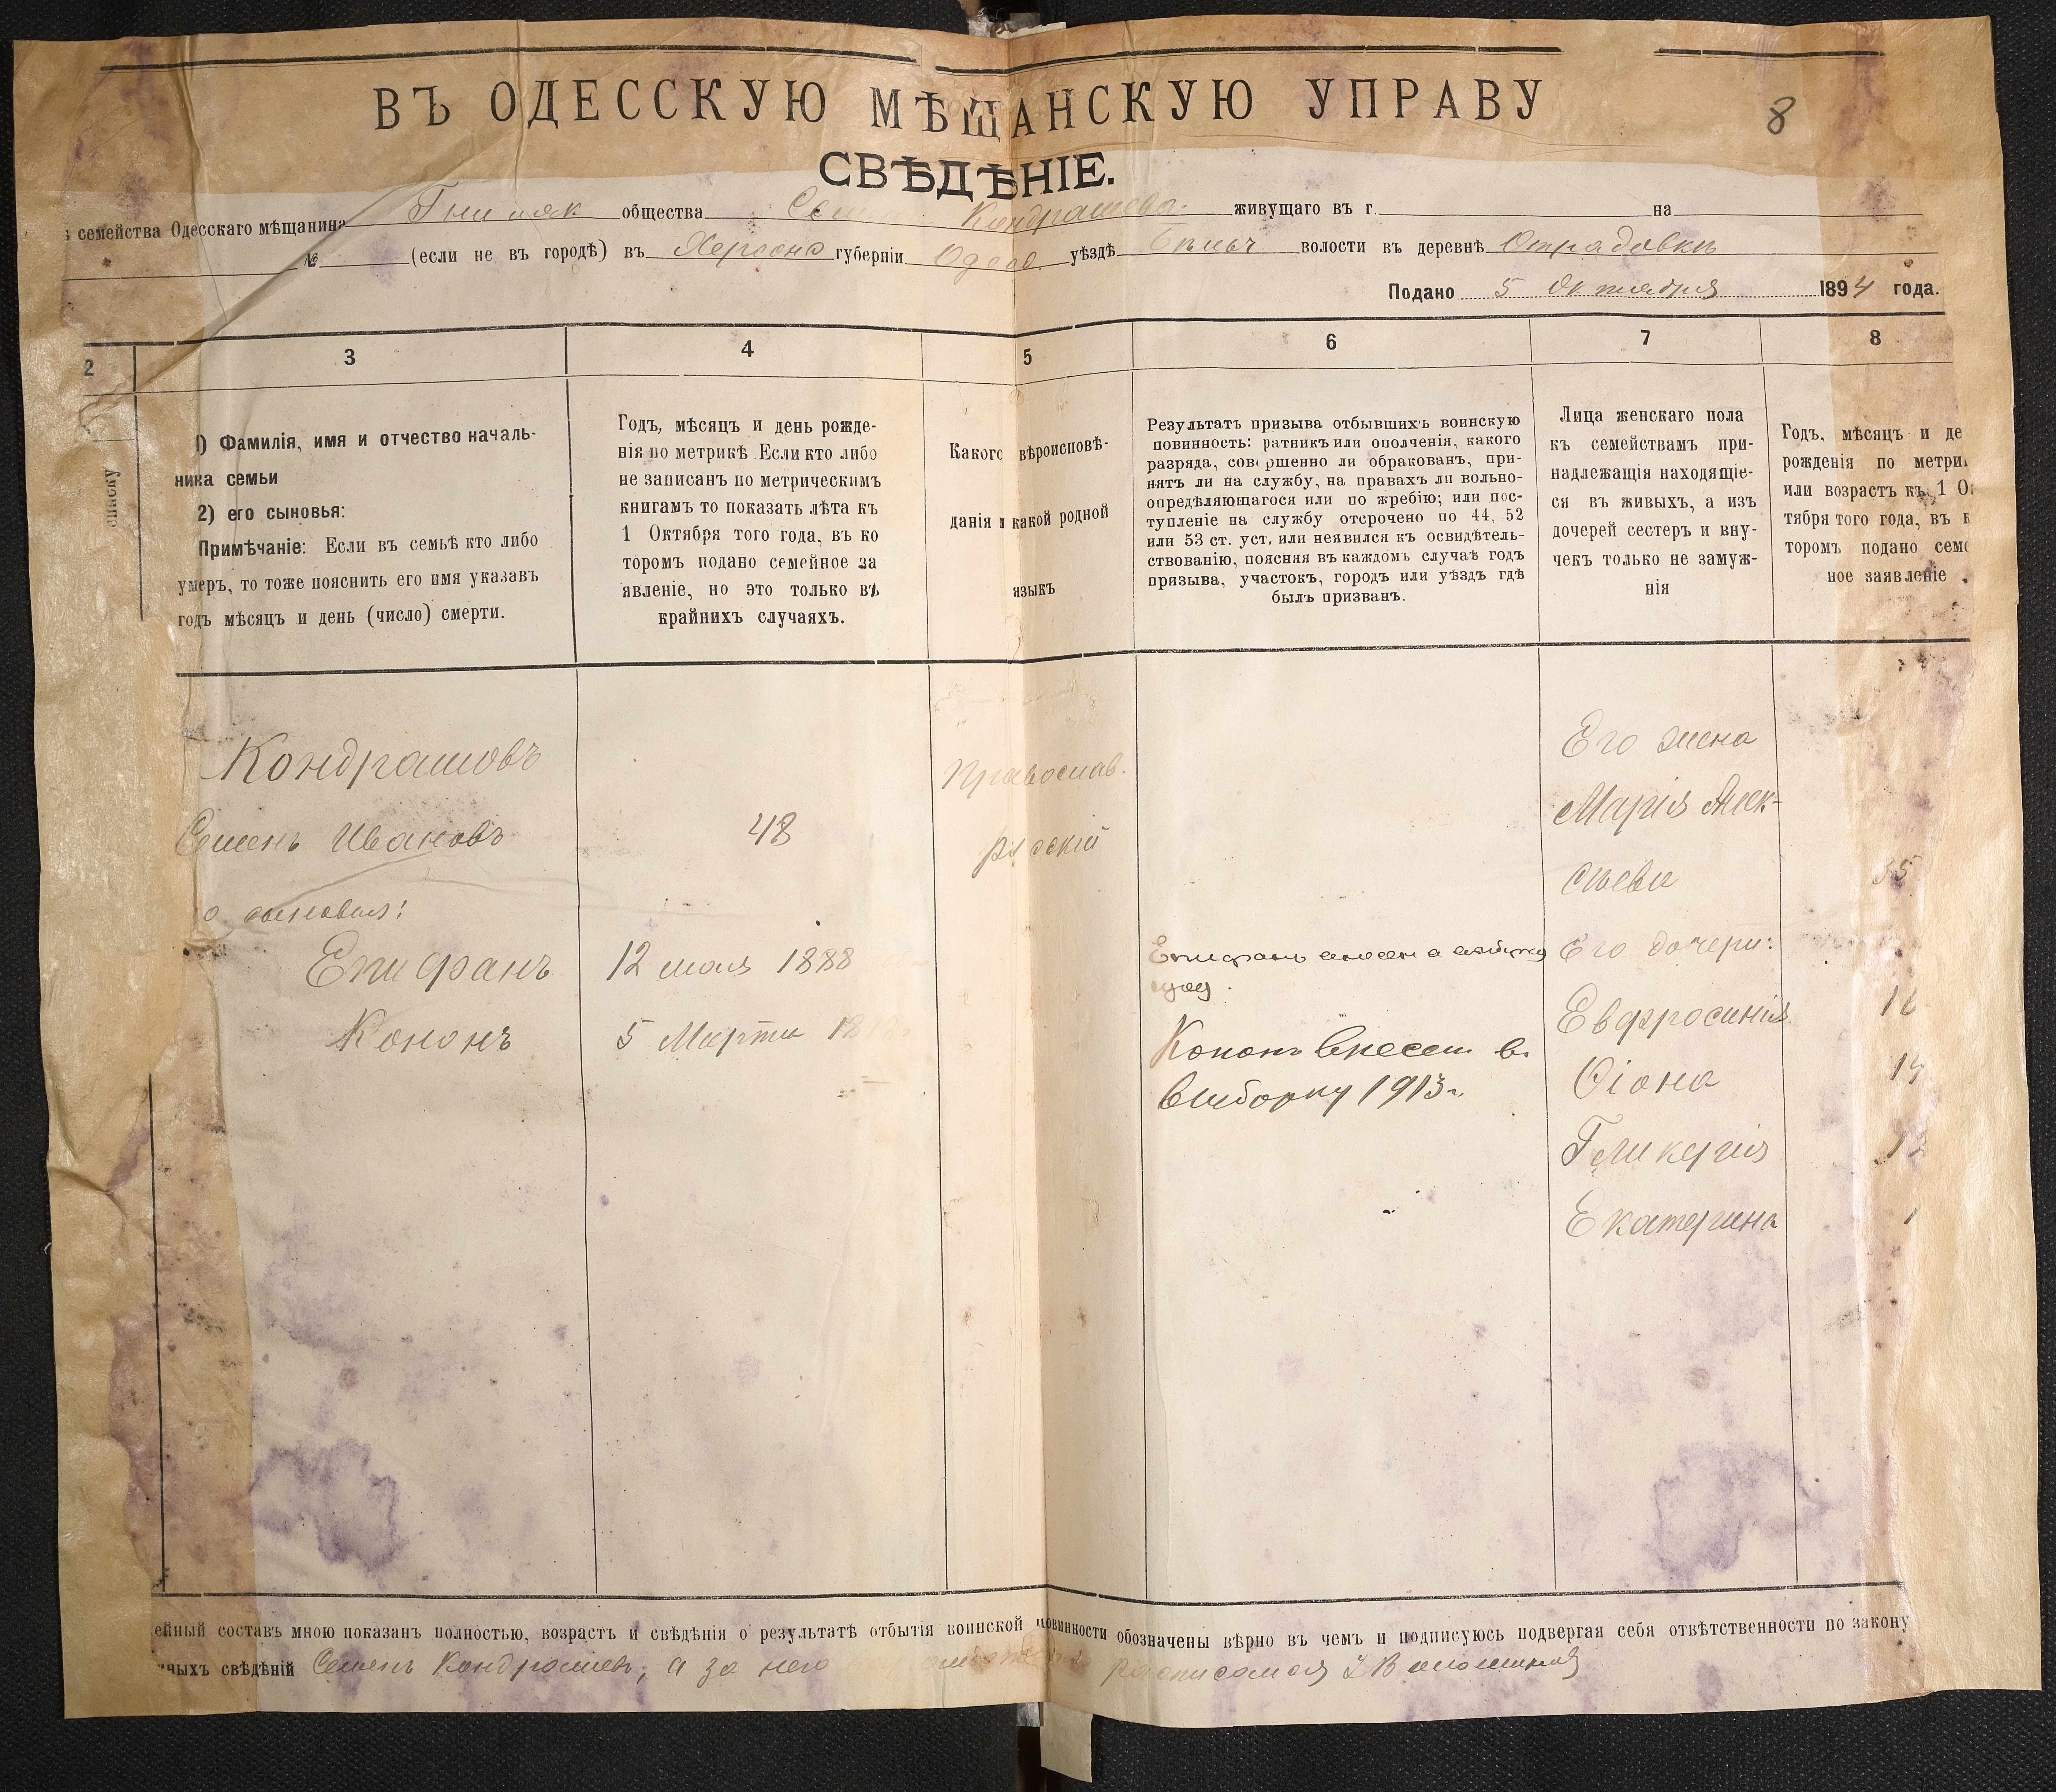 ВЪ ОДЕССКУЮ МѢЩАНСКУЮ УПРАВУ
8
СВѢДѢНІЕ.
семейства Одесскаго мѣщанина общества Кондрашева живущаго въ г. на
№ (если не въ городѣ) въ Херсонс губерніи Одесс. уѣздѣ волости въ деревнѣ Отрадовкѣ
Подано 5 Октября 1894 года.
2 3 4 5 6 7 8
списку
1) Фамилія, имя и отчество началь-
ника семьи
2) его сыновья:
Примѣчаніе: Если въ семьѣ кто либо
умеръ, то тоже пояснить его имя указавъ
годъ мѣсяцъ и день (число) смерти.
Годъ, мѣсяцъ и день рожде-
нія по метрикѣ Если кто либо
не записанъ по метрическимъ
книгамъ то показать лѣта къ
1 Октября того года, въ ко
торомъ подано семейное за
явленіе, но это только въ
крайнихъ случаяхъ.
Какого вѣроисповѣ-
данія и какой родной
языкъ
Результатъ призыва отбывшихъ воинскую
повинность: ратникъ или ополченія, какого
разряда, совершенно ли обракованъ, при-
нятъ ли на службу, на правахъ ли вольно-
опредѣляющагося или по жребію; или пос-
тупленіе на службу отсрочено по 44, 52
или 53 ст. уст. или неявился къ освидѣтель-
ствованію, поясняя въ каждомъ случаѣ годъ
призыва, участокъ, городъ или уѣздъ гдѣ
былъ призванъ.
Лица женскаго пола
къ семействамъ при-
надлежащія находящіе-
ся въ живыхъ, а изъ
дочерей сестеръ и вну-
чекъ только не замуж-
нія
Годъ, мѣсяцъ и де
рожденія по метри
или возрастъ къ 1 О
тября того года, въ к
торомъ подано сем
ное заявленіе
Кондрашовъ
Семенъ Ивановъ
48
Православ.
русскій
о сыновья:
Епифанъ 12 мая 1888
Кононъ 5 Марта 18
Епифанъ
Кононъ внесен в
выборку 1913 г.
Его жена
Марія Алек-
сѣева 35
Его дочери:
Евфросинія 16
Ѳіона 14
Гликерія
Екатерина
ейный составъ мною показанъ полностью, возрастъ и свѣдѣнія о результатѣ отбытія воинской повинности обозначены вѣрно въ чемъ и подписуюсь подвергая себя отвѣтственности по закону
чныхъ свѣдѣній Семенъ Кондрашевъ, а за него росписался